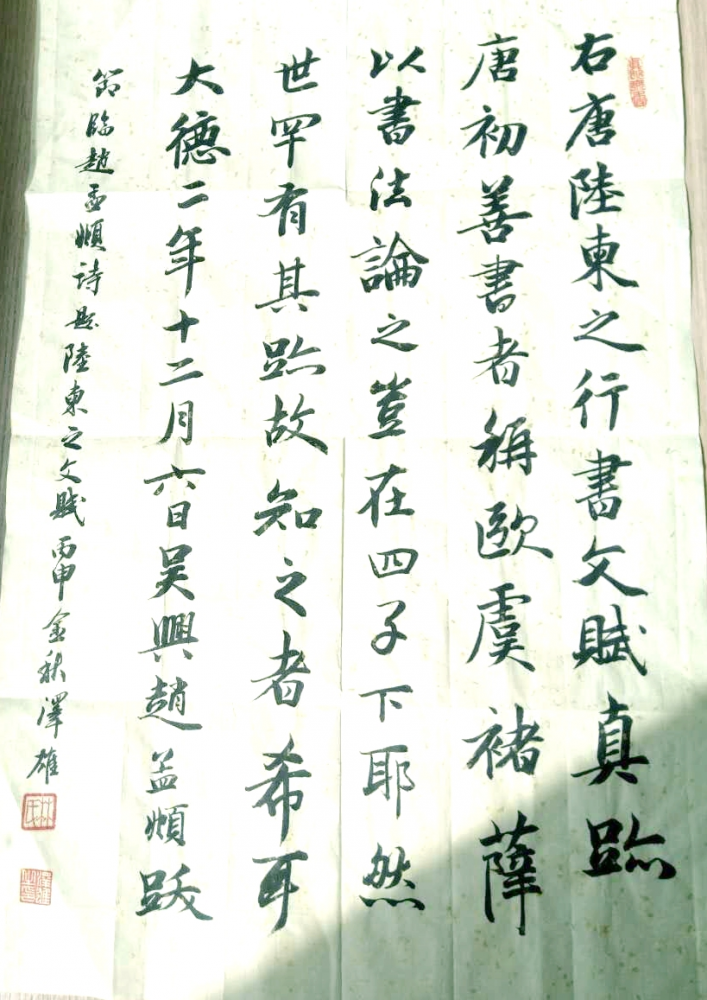 右唐陸東之行書文賦真跡
唐初善書者稱歐虞褚薛
以書法論之豈在四子下耶然
世罕有其跡故知之者希耳
大德二年十二月六日吴興趙孟頫跋
節臨趙孟頫詩跋陸東之文賦丙申金秋澤雄